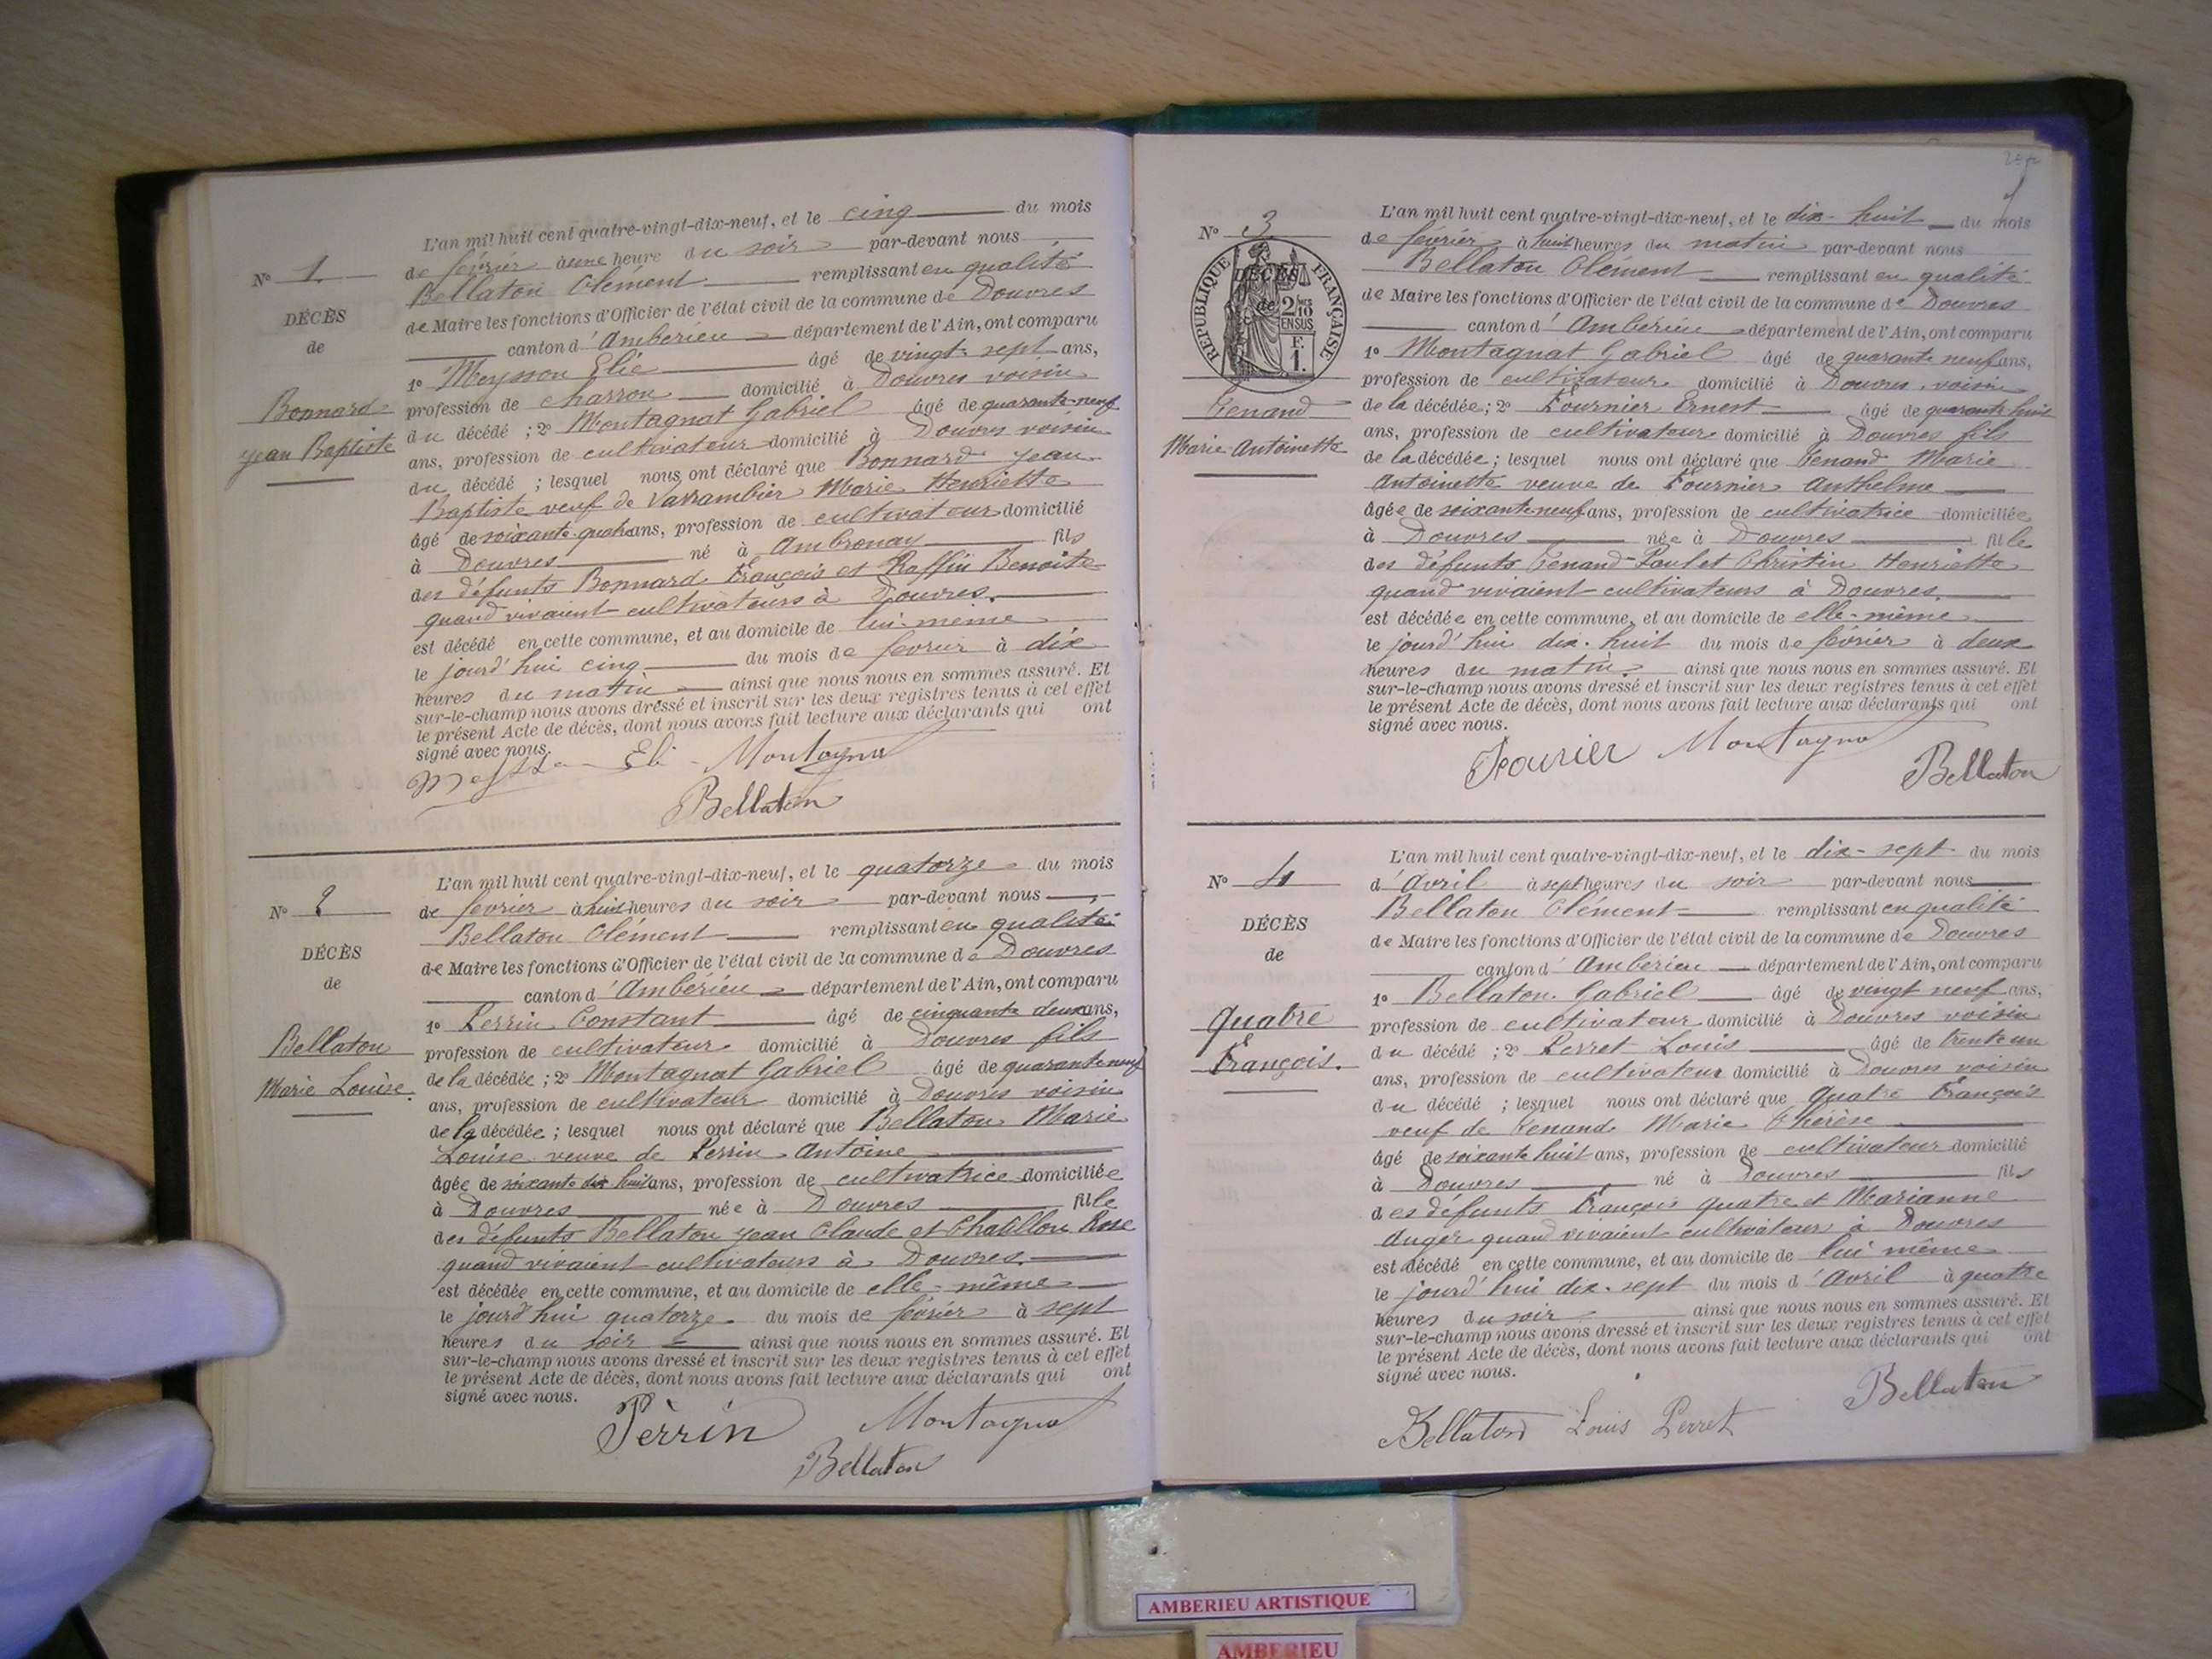 L'an mil huit cent quatre-vingt-dix-neuf, et le cinq du mois
de février à une heure du soir par-devant nous
Bellaton Clément remplissant en qualité
de Maire les fonctions d'Officier de l'état civil de la commune de Douvres
canton d'Ambérieu département de l'Ain, ont comparu
1º Meysson Elie âgé de vingt-sept ans,
profession de charron domicilié à Douvres voisin
du décédé ; 2º Montagnat Gabriel âgé de quarante-neuf
ans, profession de cultivateur domicilié à Douvres voisin
du décédé ; lesquel nous ont déclaré que Bonnard Jean
Baptiste veuf de Varrambier Marie Henriette
âgé de soixante-quatre ans, profession de cultivateur domicilié
à Douvres né à Ambronay fils
des défunts Bonnard François et Raffin Benoite
quand vivaient cultivateurs à Douvres.
est décédé en cette commune, et au domicile de lui-même
le jourd'hui cinq du mois de fevrier à dix
heures du matin ainsi que nous nous en sommes assuré. Et
sur-le-champ nous avons dressé et inscrit sur les deux registres tenus à cet effet
le présent Acte de décès, dont nous avons fait lecture aux déclarants qui ont
signé avec nous.
Montagnat
Bellaton
Nº 1
DÉCÈS
de
Bonnard
Jean Baptiste
L'an mil huit cent quatre-vingt-dix-neuf, et le quatorze du mois
de fevrier à huit heures du soir par-devant nous
Bellaton Clément remplissant en qualité
de Maire les fonctions d'Officier de l'état civil de la commune de Douvres
canton d'Ambérieu département de l'Ain, ont comparu
1º Perrin Constant âgé de cinquante deux ans,
profession de cultivateur domicilié à Douvres fils
de la décédée ; 2º Montagnat Gabriel âgé de quarante neuf
ans, profession de cultivateur domicilié à Douvres voisin
de la décédée ; lesquel nous ont déclaré que Bellaton Marie
Louise veuve de Perrin Antoine
âgée de soixante dix huit ans, profession de cultivatrice domiciliée
à Douvres née à Douvres fille
des défunts Bellaton Jean Claude et Chatillon Rose
quand vivaient cultivateurs à Douvres.
est décédée en cette commune, et au domicile de elle-même
le jourd'hui quatorze du mois de février à sept
heures du soir ainsi que nous nous en sommes assuré. Et
sur-le-champ nous avons dressé et inscrit sur les deux registres tenus à cet effet
le présent Acte de décès, dont nous avons fait lecture aux déclarants qui ont
signé avec nous.
Pèrrin Montagnat
Bellaton
Nº 2
DÉCÈS
de
Bellaton
Marie Louise.
L'an mil huit cent quatre-vingt-dix-neuf, et le dix-huit du mois
de février à huit heures du matin par-devant nous
Bellaton Clément remplissant en qualité
de Maire les fonctions d'Officier de l'état civil de la commune de Douvres
canton d'Ambérieu département de l'Ain, ont comparu
1º Montagnat Gabriel âgé de quarante neuf ans,
profession de cultivateur domicilié à Douvres, voisin
de la décédée ; 2º Fournier Ernest âgé de quarante huit
ans, profession de cultivateur domicilié à Douvres fils
de la décédée ; lesquel nous ont déclaré que Tenand Marie
Antoinette veuve de Fournier Anthelme
âgée de soixante neuf ans, profession de cultivatrice domiciliée
à Douvres née à Douvres fille
des défunts Tenand Paul et Christin Henriette
quand vivaient cultivateurs à Douvres.
est décédée en cette commune, et au domicile de elle-même
le jourd'hui dix-huit du mois de février à deux
heures du matin ainsi que nous nous en sommes assuré. Et
sur-le-champ nous avons dressé et inscrit sur les deux registres tenus à cet effet
le présent Acte de décès, dont nous avons fait lecture aux déclarants qui ont
signé avec nous.
Montagnat
Bellaton
Nº 3
RÉPUBLIQUE FRANÇAISE
DÉCÈS
de
2/10
EN SUS
F.
1.
Tenand
Marie Antoinette
L'an mil huit cent quatre-vingt-dix-neuf, et le dix-sept du mois
d'Avril à sept heures du soir par-devant nous
Bellaton Clément remplissant en qualité
de Maire les fonctions d'Officier de l'état civil de la commune de Douvres
canton d'Ambérieu département de l'Ain, ont comparu
1º Bellaton Gabriel âgé de vingt neuf ans,
profession de cultivateur domicilié à Douvres voisin
du décédé ; 2º Perret Louis âgé de trente un
ans, profession de cultivateur domicilié à Douvres voisin
du décédé ; lesquel nous ont déclaré que Quatre François
veuf de Tenand Marie Thérèse
âgé de soixante huit ans, profession de cultivateur domicilié
à Douvres né à Douvres fils
des défunts François Quatre et Marianne
Auger quand vivaient cultivateurs à Douvres
est décédé en cette commune, et au domicile de lui même
le jourd'hui dix-sept du mois d'Avril à quatre
heures du soir ainsi que nous nous en sommes assuré. Et
sur-le-champ nous avons dressé et inscrit sur les deux registres tenus à cet effet
le présent Acte de décès, dont nous avons fait lecture aux déclarants qui ont
signé avec nous.
Bellaton Louis Perret Bellaton
Nº 4
DÉCÈS
de
Quatre
François.
AMBERIEU ARTISTIQUE
AMBERIEU